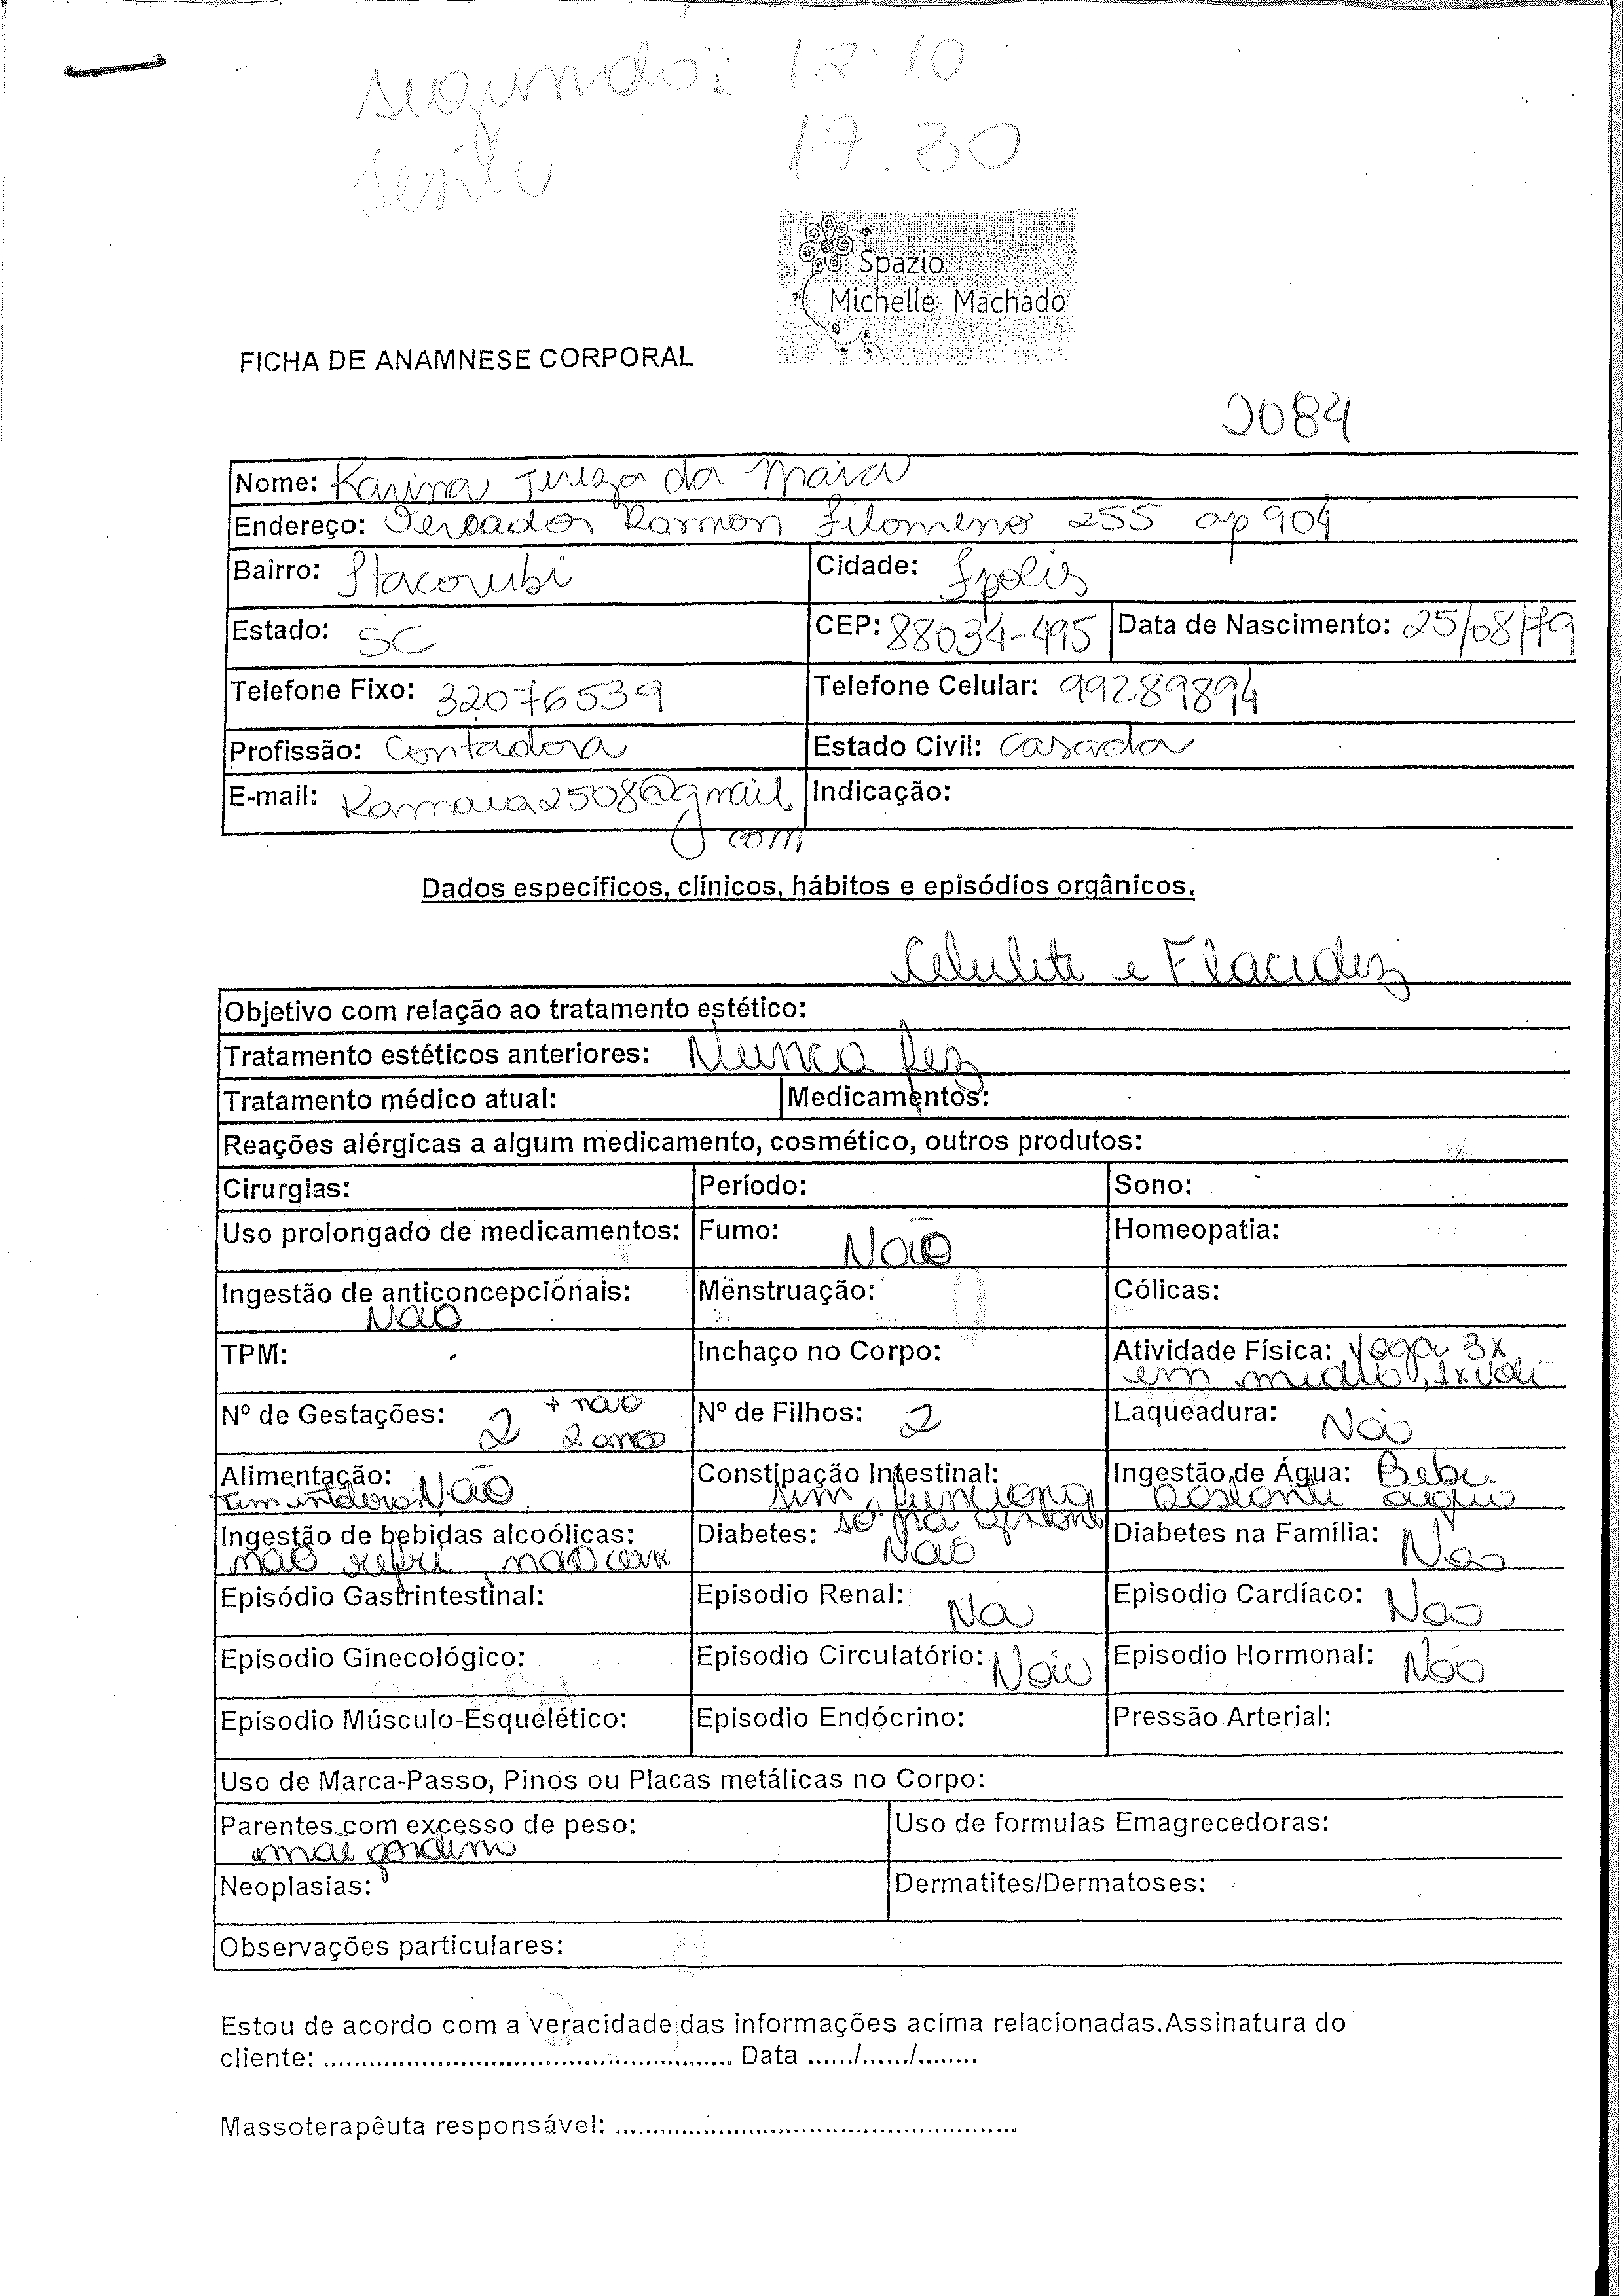 segunda: 12:10
sexta 17:30
Spazio
Michelle Machado
FICHA DE ANAMNESE CORPORAL
2084
Nome: Karina Tereza da Maia
Endereço: Vereador Ramon Filomeno 255 ap 904
Bairro: Itacorubi Cidade: Fpolis
Estado: SC CEP: 88034-495 Data de Nascimento: 25/08/79
Telefone Fixo: 32076539 Telefone Celular: 99289894
Profissão: Contadora Estado Civil: casada
E-mail: Kamaia2508@gmail. Indicação:
com
Dados específicos, clínicos, hábitos e episódios orgânicos.
Celulite e Flacidez
Objetivo com relação ao tratamento estético:
Tratamento estéticos anteriores: Nunca fez
Tratamento médico atual: Medicamentos:
Reações alérgicas a algum medicamento, cosmético, outros produtos:
Cirurgias: Período: Sono:
Uso prolongado de medicamentos: Fumo: Não Homeopatia:
Ingestão de anticoncepcionais: Menstruação: Cólicas:
Não
TPM: Inchaço no Corpo: Atividade Física: yoga 3x
em media, 1x
Nº de Gestações: 2 + não Nº de Filhos: 2 Laqueadura: Não
2 anos
Alimentação: Não Constipação Intestinal: Ingestão de Água: Bebe
tem sim, funciona bastante agua
Ingestão de bebidas alcoólicas: Diabetes: só Diabetes na Família: Não
não refri, não Não
Episódio Gastrintestinal: Episodio Renal: Não Episodio Cardíaco: Não
Episodio Ginecológico: Episodio Circulatório: Não Episodio Hormonal: Não
Episodio Músculo-Esquelético: Episodio Endócrino: Pressão Arterial:
Uso de Marca-Passo, Pinos ou Placas metálicas no Corpo:
Parentes com excesso de peso: Uso de formulas Emagrecedoras:
mãe
Neoplasias: Dermatites/Dermatoses:
Observações particulares:
Estou de acordo com a veracidade das informações acima relacionadas.Assinatura do
cliente: ...................................................... Data ....../....../........
Massoterapêuta responsável: .....................................................